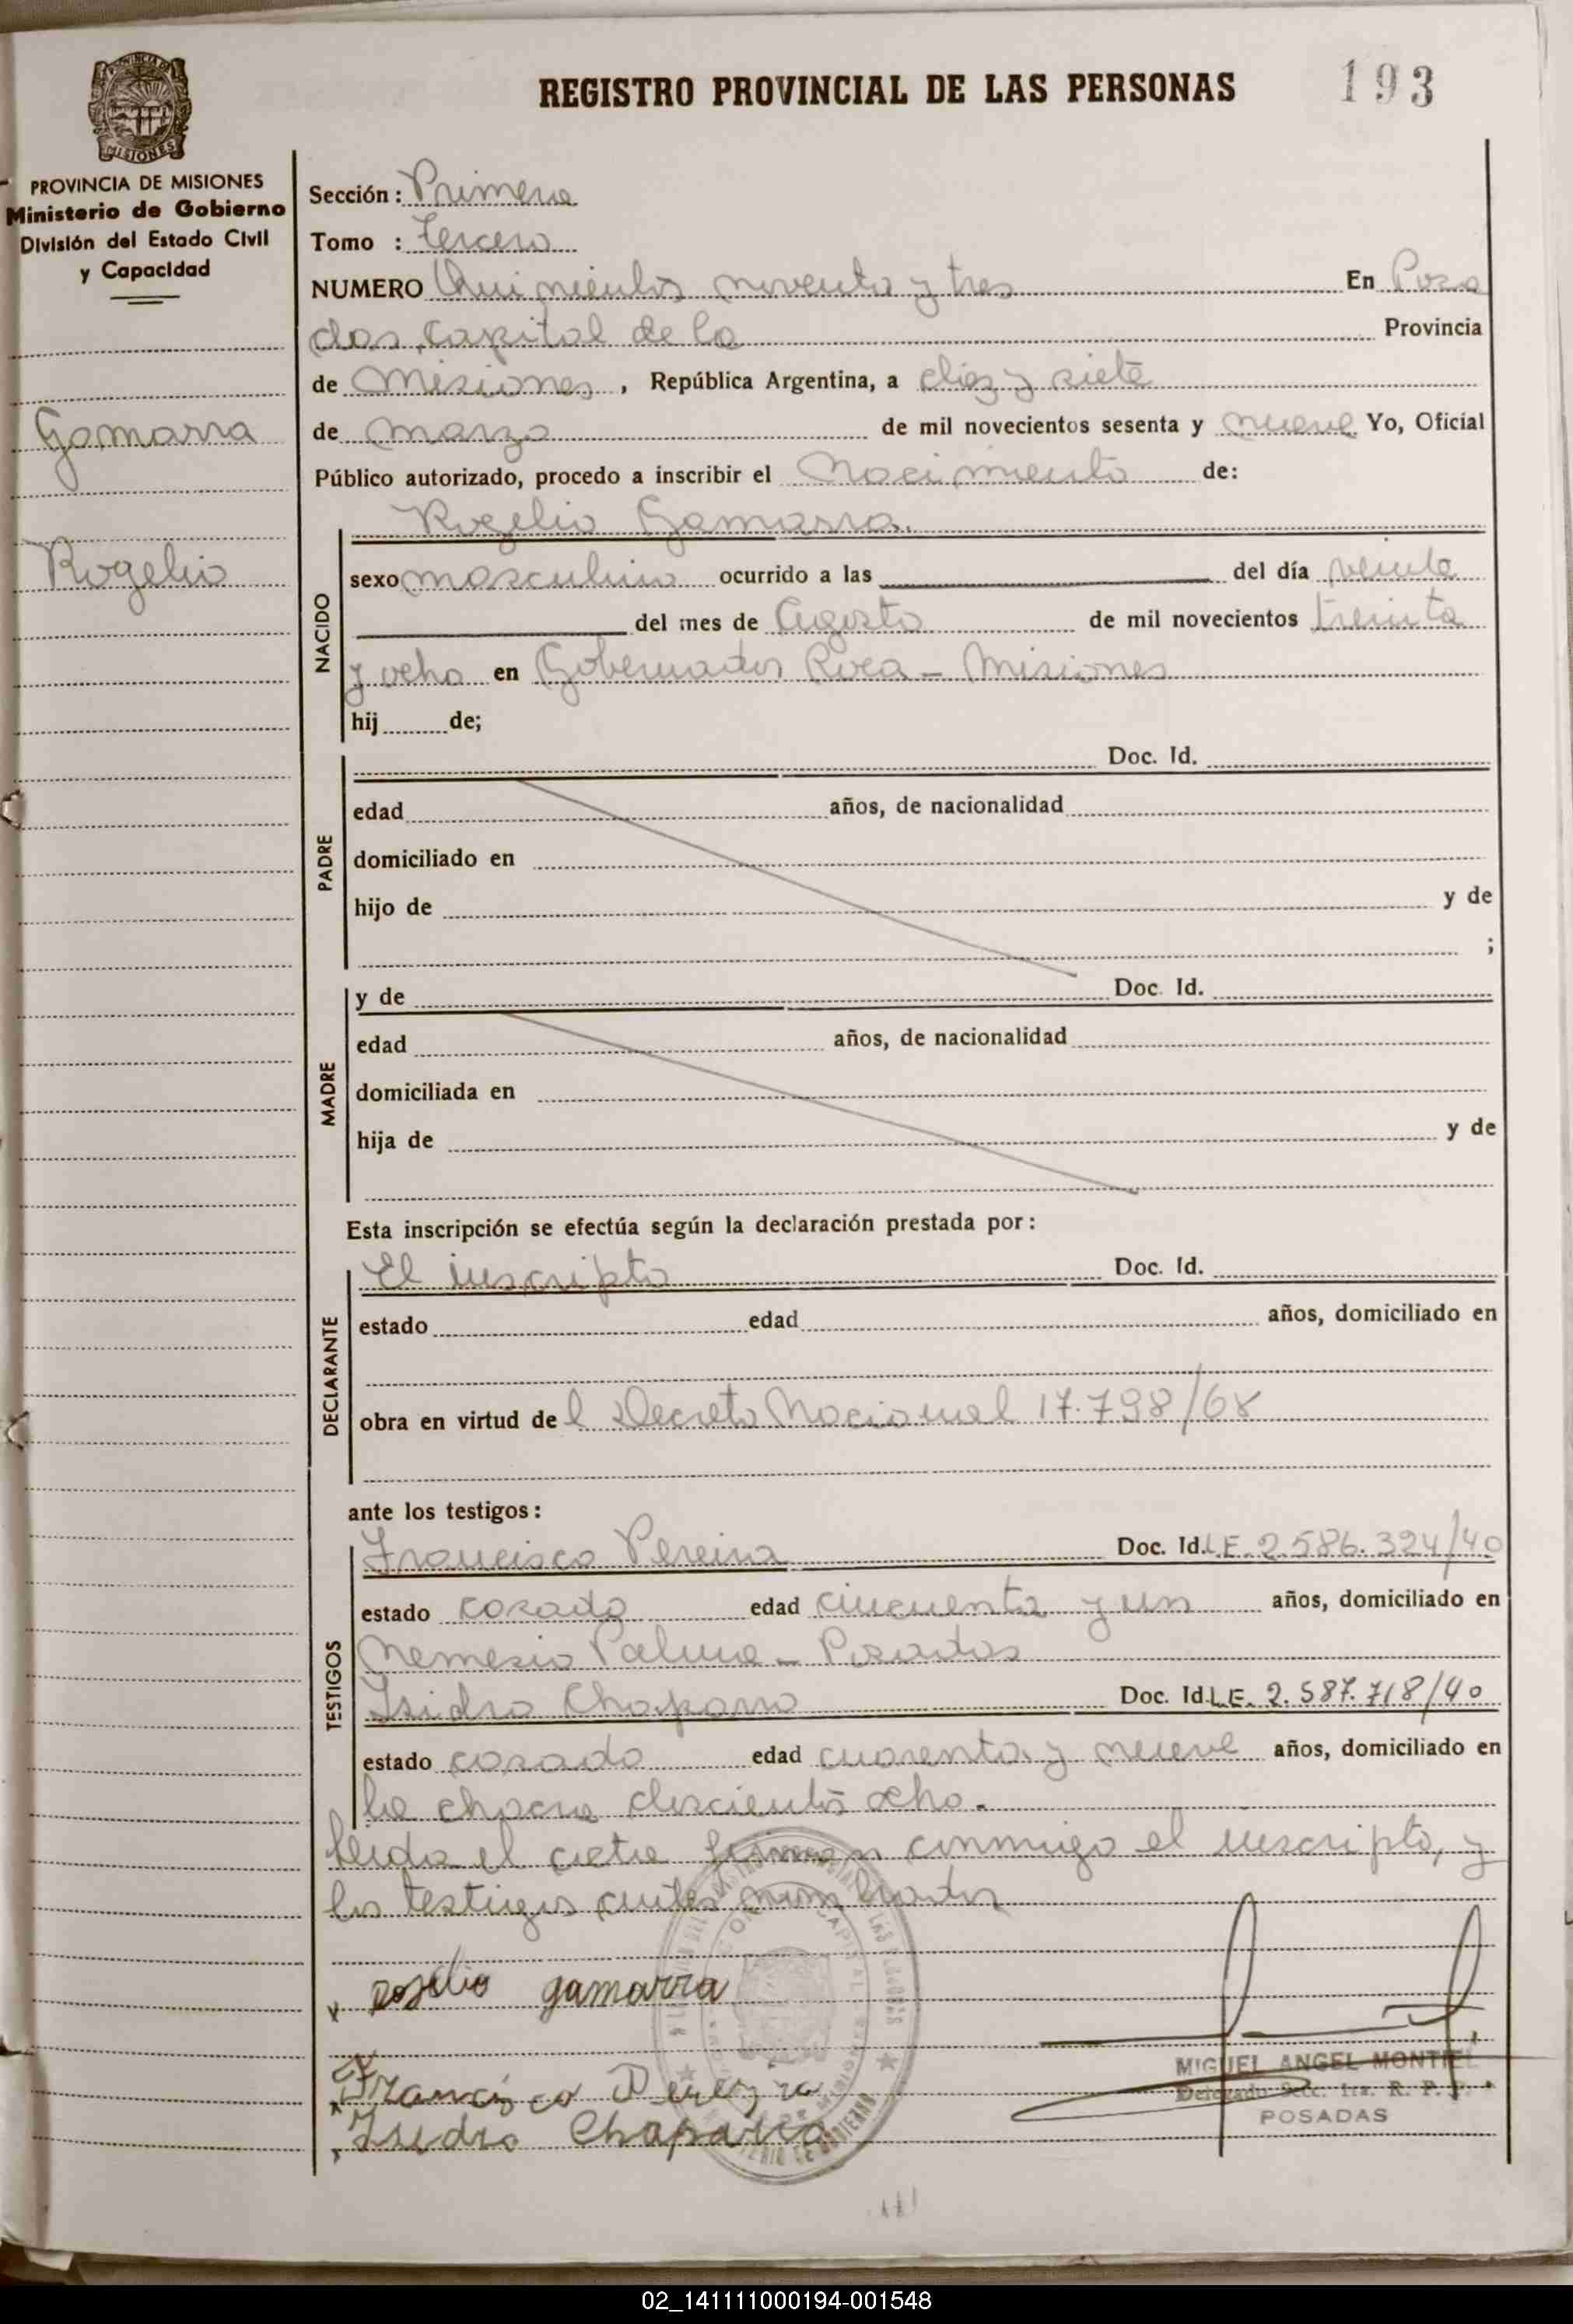 REGISTRO PROVINCIAL DE LAS PERSONAS
193
PROVINCIA DE MISIONES
Ministerio de Gobierno
División del Estado Civil
y Capacidad
Gamarra
Rogelio
Sección: Primera
Tomo : tercero
NUMERO Quinientos noventa y tres En Posa
das, Capital de la Provincia
de Misiones, República Argentina, a diez y siete
de marzo de mil novecientos sesenta y nueve Yo, Oficial
Público autorizado, procedo a inscribir el Nacimiento de:
Rogelio Gamarra.
NACIDO
sexo masculino ocurrido a las del día veinte
del mes de Agosto de mil novecientos treinta
y ocho en Gobernador Roca - Misiones
hij de;
PADRE
Doc. Id.
edad años, de nacionalidad
domiciliado en
hijo de y de
;
MADRE
y de Doc. Id.
edad años, de nacionalidad
domiciliada en
hija de y de
Esta inscripción se efectúa según la declaración prestada por:
DECLARANTE
El inscripto Doc. Id.
estado edad años, domiciliado en
obra en virtud del Decreto Nacional 17.798/68
ante los testigos:
TESTIGOS
Francisco Pereira Doc. Id. L.E. 2.586.324/40
estado casado edad cincuenta y un años, domiciliado en
Nemesio Palma - Posadas
Isidro Chaparro Doc. Id. L.E. 2.587.718/40
estado casado edad cuarenta y nueve años, domiciliado en
la chacra doscientos ocho.
leida el acta firman conmigo el inscripto, y
los testigos antes nombrados
rogelio gamarra
Francisco Pereira
Isidro Chaparro
MIGUEL ANGEL MONTIEL
Delegado Secc. 1ra. R. P. P.
POSADAS
02_141111000194-001548